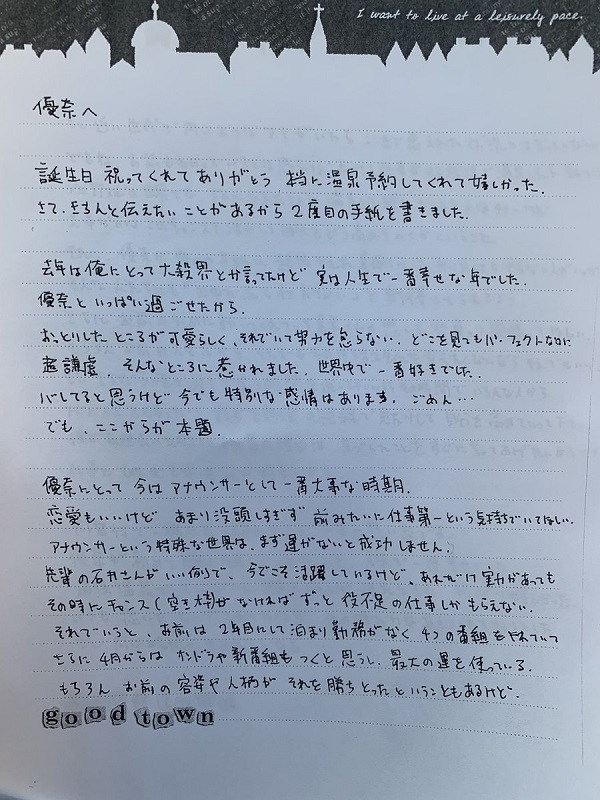 I want to live at a leisurely pace.
優奈へ
誕生日 祝ってくれて ありがとう 本当に温泉予約してくれて嬉しかった.
さて、きちんと伝えたいことがあるから 2度目の手紙を書きました.
去年は俺にとって大殺界とか言ってたけど 実は人生で一番幸せな年でした.
優奈といっぱい過ごせたから.
おっとりしたところが可愛らしく、それでいて努力を怠らない. どこを見てもパーフェクトなのに
超謙虚. そんなところに惹かれました. 世界中で一番好きでした.
バレてると思うけど 今でも特別な感情はあります. ごめん…
でも、ここからが本題.
優奈にとって 今はアナウンサーとして一番大事な時期.
恋愛もいいけど あまり没頭しすぎず 前みたいに仕事第一という気持ちでいてほしい.
アナウンサーという特殊な世界は、まず運がないと成功しません.
先輩の石井さんがいい例で、今でこそ活躍しているけど、あれだけ実力があっても
その時にチャンス(空き枠)がなければ ずっと役不足の仕事しかもらえない.
それでいうと、お前は2年目にして泊まり勤務がなく 4つの番組を
さらに4月からは 新番組もつくと思うし、最大の運を使っている.
もちろん お前の容姿や人柄が それを勝ちとったということもあるけど.
good town